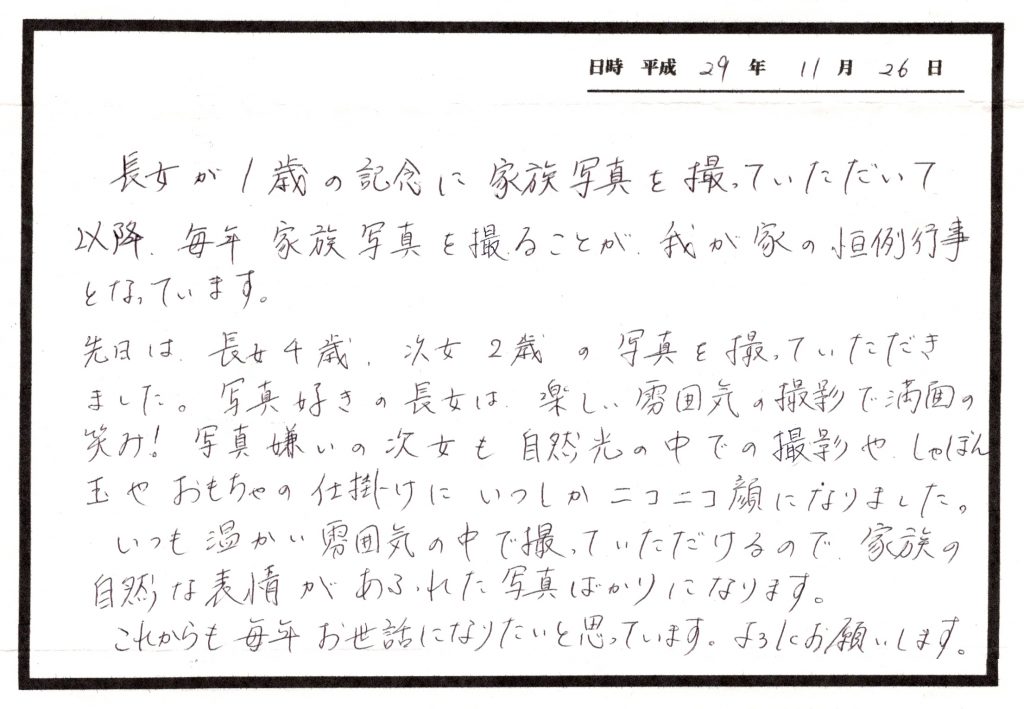 日時 平成 29 年 11 月 26 日
長女が1歳の記念に家族写真を撮っていただいて
以降、毎年家族写真を撮ることが、我が家の恒例行事
となっています。
先日は、長女4歳、次女2歳の写真を撮っていただき
ました。写真好きの長女は、楽しい雰囲気の撮影で満面の
笑み!写真嫌いの次女も自然光の中での撮影や、しゃぼん
玉やおもちゃの仕掛けにいつしかニコニコ顔になりました。
いつも温かい雰囲気の中で撮っていただけるので、家族の
自然な表情があふれた写真ばかりになります。
これからも毎年お世話になりたいと思っています。よろしくお願いします。